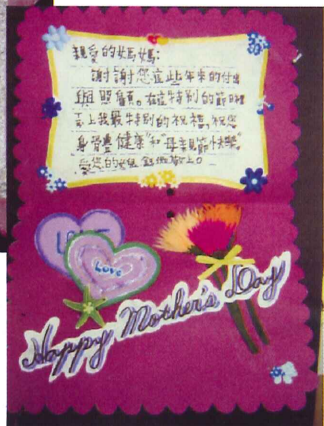 親愛的媽媽:
謝謝您在這些年來的付出
與照顧。在這特別的節日裡
至上我最特別的祝福,祝您
身體健康"和"母親節快樂"。
愛您的女兒 敬上。
LOVE
Love
Happy Mother's Day